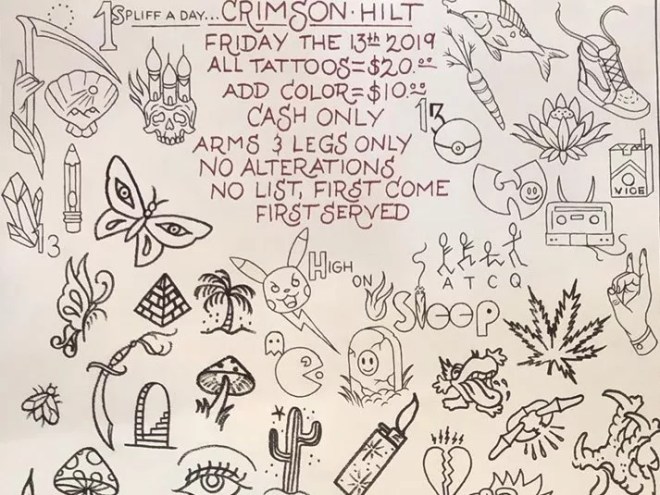 1 SPLIFF A DAY...
CRIMSON·HILT
FRIDAY THE 13th 2019
ALL TATTOOS=$20.00
ADD COLOR=$10.00
CASH ONLY
ARMS & LEGS ONLY
NO ALTERATIONS
NO LIST, FIRST COME
FIRST SERVED
13
VICE
13
HIGH
ON
Sleep
A T C Q